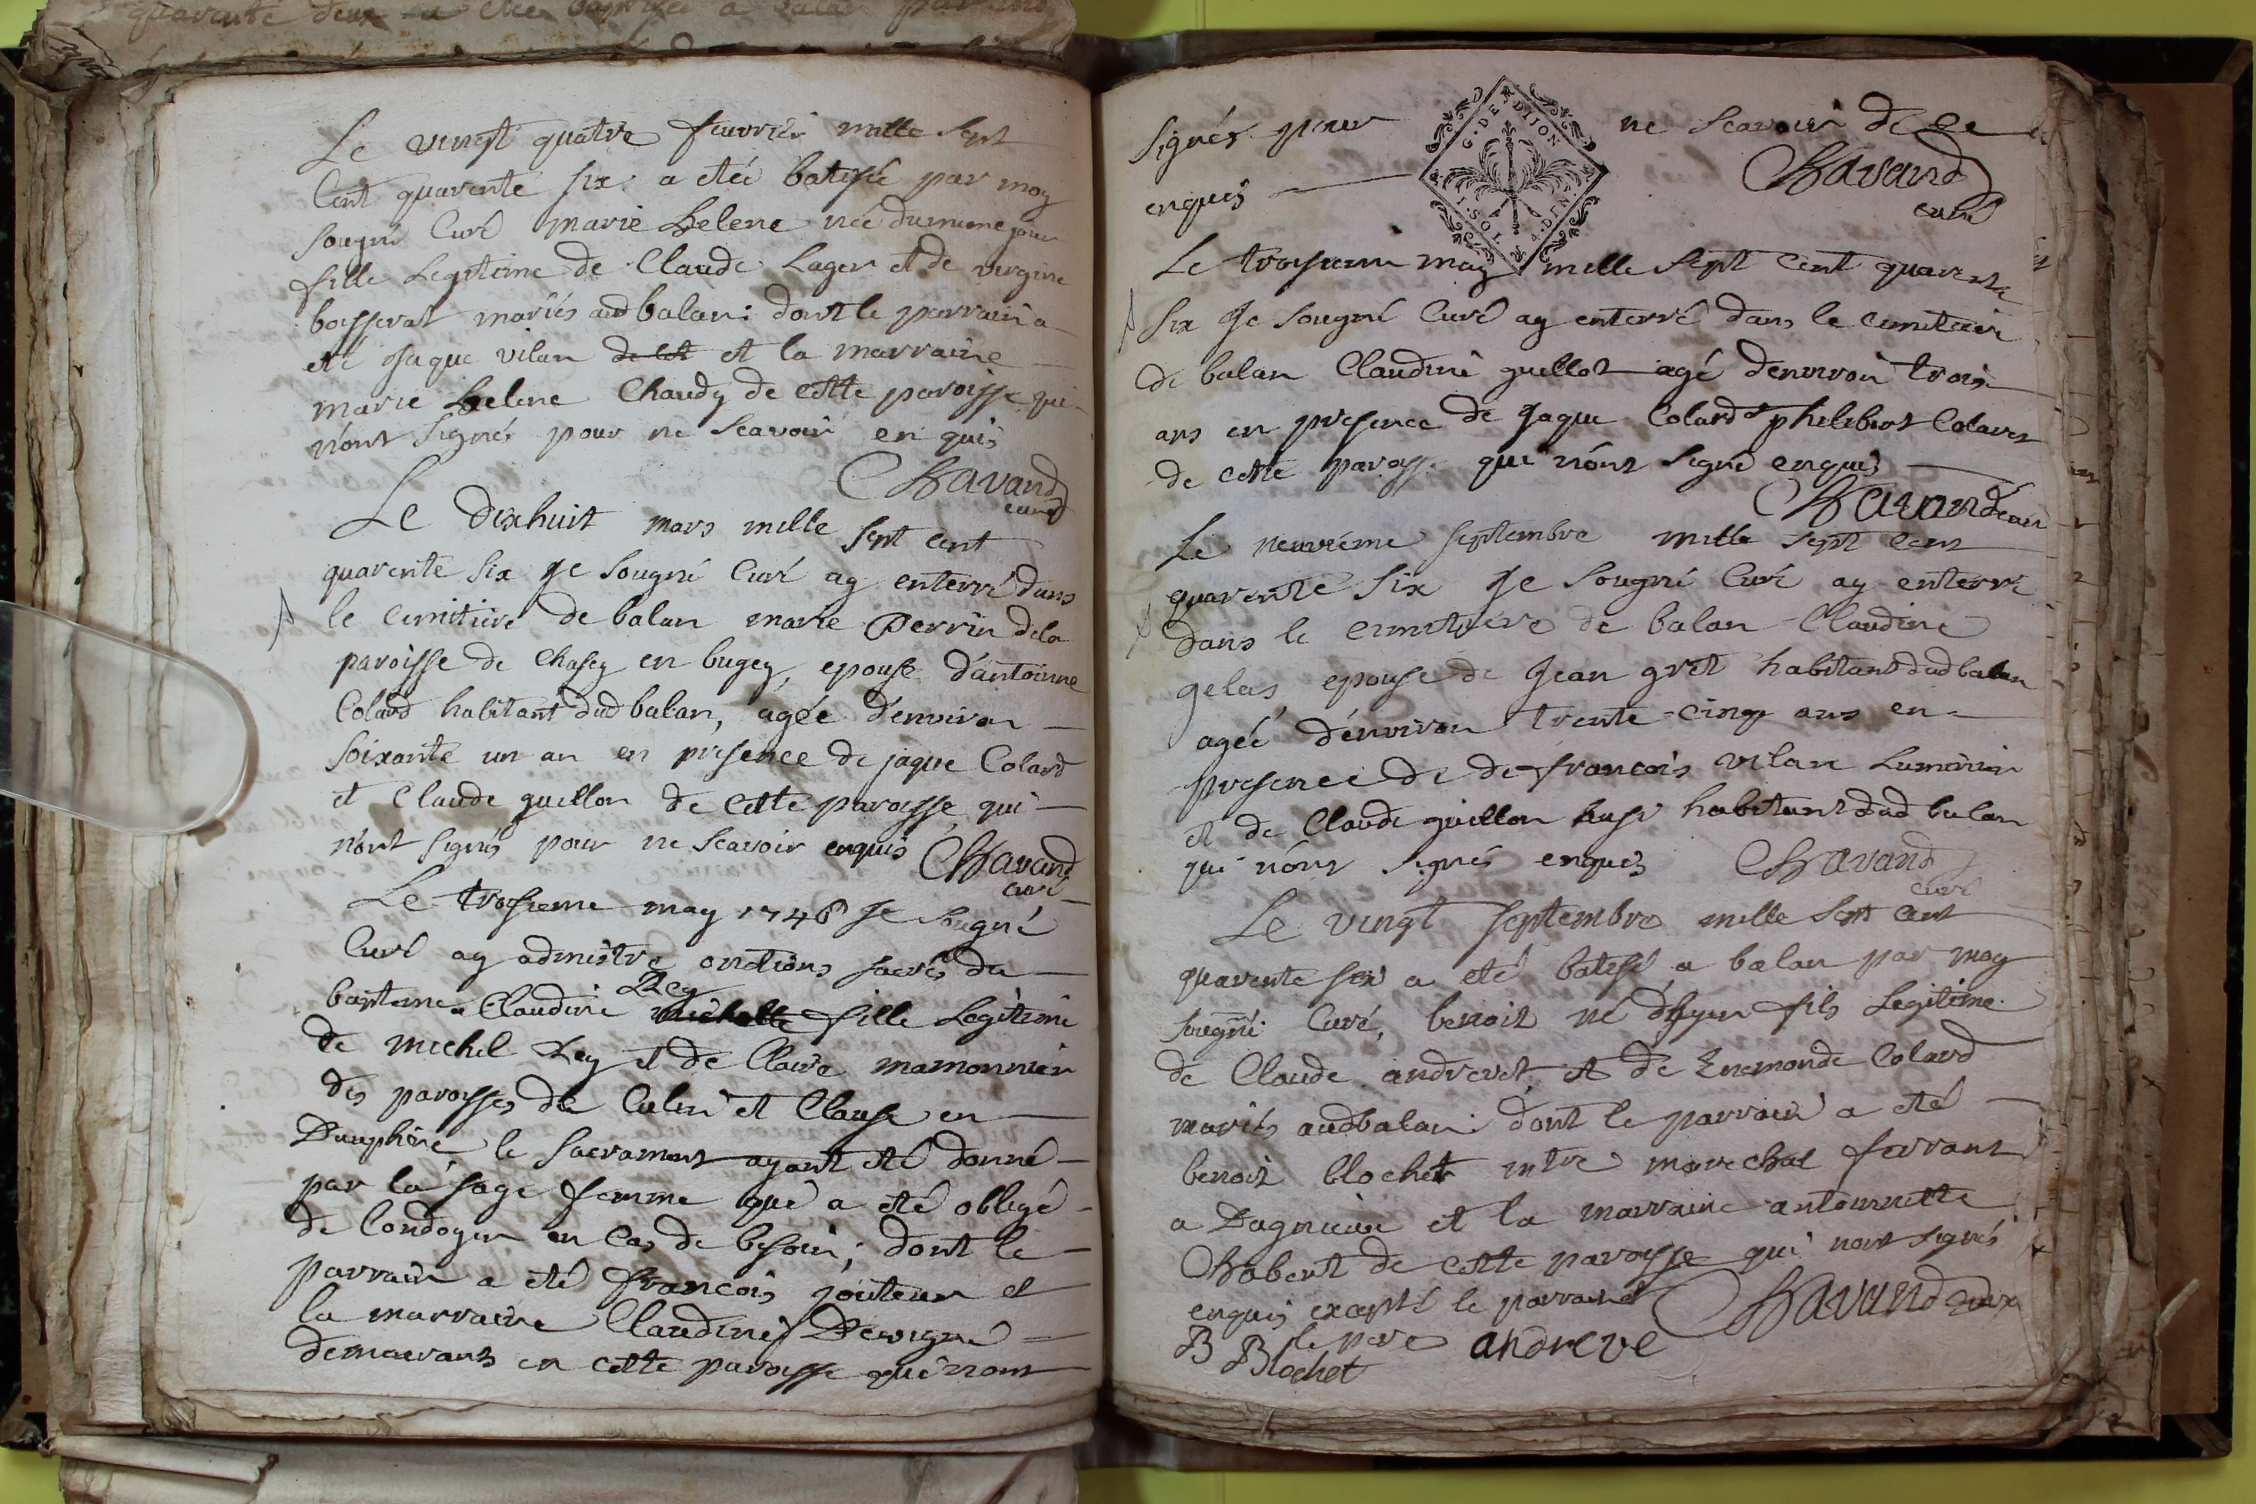 Le vingt quatre fevrier mille sept
Cent quarente six a etéé batisée par moy
sougné Curé marie helene née du meme jour
fille Legitime de Claude Lager et de virgine
boisserat mariés aud balan: dont le parrain a
eté Jaque vilan et la marraine
marie helene Chaudy de cette paroisse qui
n'ont signés pour ne scavoir enquis
Chavand
curé
Le dixhuit mars mille sept cent
quarente six Je sougné Curé ay enterré dans
le cimitiere de balan marie Perrin dela
paroisse de Chasey en bugey, epouse d'antoinne
Colard habitant dud balan, agée d'environ
soixante un an en présence de jaque Colard
et Claude guillon de cette paroisse qui
n'ont signés pour ne scavoir enquis Chavand
curé
Le troisieme may 1746 Je sougné
Curé ay admistré onctions sacrés du
Rey
bapteme a Claudine michelle fille Legitime
de michel Rey et de Claire mamonnier
des paroisses de Culin et Clause en
Dauphiné le sacrament ayant eté donné
par la sage femme qui a eté obligé
de londoyer en Cas de besoin; dont le
parrain a eté françois jouteur et
la marraine Claudine
demeurants en cette paroisse qui n'ont
signés pour ne scavoir de ce
enquis Chavand
curé
G. DE DIJON
Le troisieme may mille sept cent quarente
six Je sougné Curé ay enterré dans le cimitiere
de balan Claudine guillot agé denviron trois
ans en presence de Jaque Colard et philibert Colard
de cette paroisse qui n'ont signé enquis
Chavand curé
Le neuvieme septembre mille sept cent
quarente six Je sougné Curé ay enterré
dans le cimitiere de balan Claudine
gelas, epouse de Jean gret habitant dud balan
agéé d'environ trente cinq ans en
presence de de françois vilan Luminier
et de Claude guillon habitant dud balan
qui n'ont signés enquis Chavand
curé
Le vingt septembre mille sept cent
quarente six a eté batisé a balan par moy
sougné Curé, benoit né d'hyer fils Legitime
de Claude andrevet et de Enemonde Colard
mariés aud balan: dont le parrain a eté
benoit blochet mtre marechal ferrant
a Dagnieux et la marraine antoinnette
Chabert de cette paroisse qui n'ont signés
enquis excepté le parrain et Chavand curé
le pere andreve
B Blochet